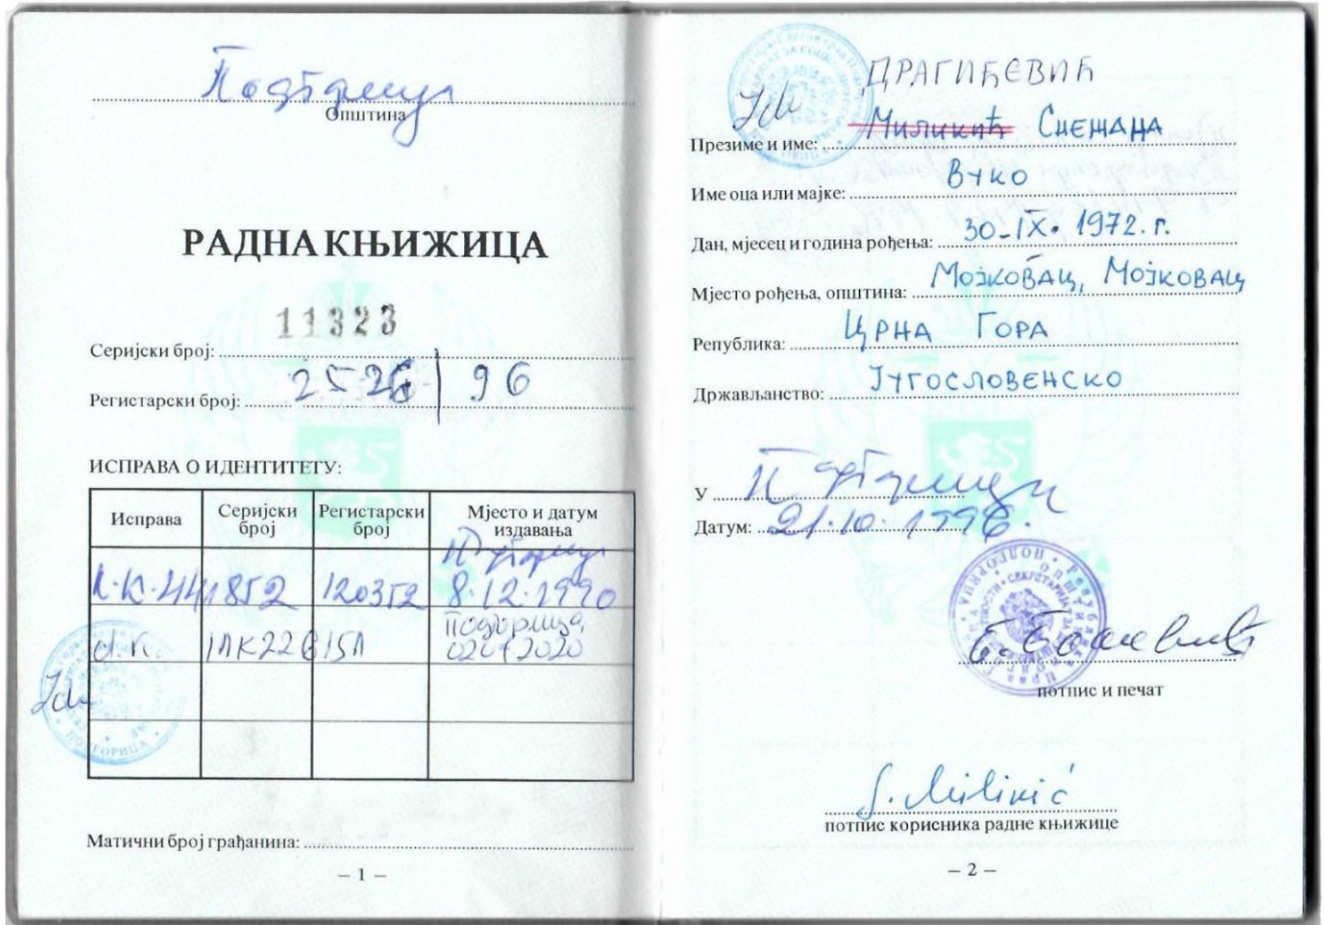 Подгорица
Општина
РАДНА КЊИЖИЦА
11323
Серијски број:
Регистарски број: 2526/96
ИСПРАВА О ИДЕНТИТЕТУ:
Исправа Серијски број Регистарски број Мјесто и датум издавања
Подгорица
Л.К. 441852 120352 8.12.1990
Подгорица
02072020
Матични број грађанина:
– 1 –
ДРАГИЋЕВИЋ
Презиме и име: Миликић СНЕЖАНА
Име оца или мајке: ВУКО
Дан, мјесец и година рођења: 30-IX. 1972. г.
Мјесто рођења, општина: МОЈКОВАЦ, МОЈКОВАЦ
Република: ЦРНА ГОРА
Држављанство: ЈУГОСЛОВЕНСКО
У Подгорици
Датум: 21.10.1996.
потпис и печат
потпис корисника радне књижице
– 2 –